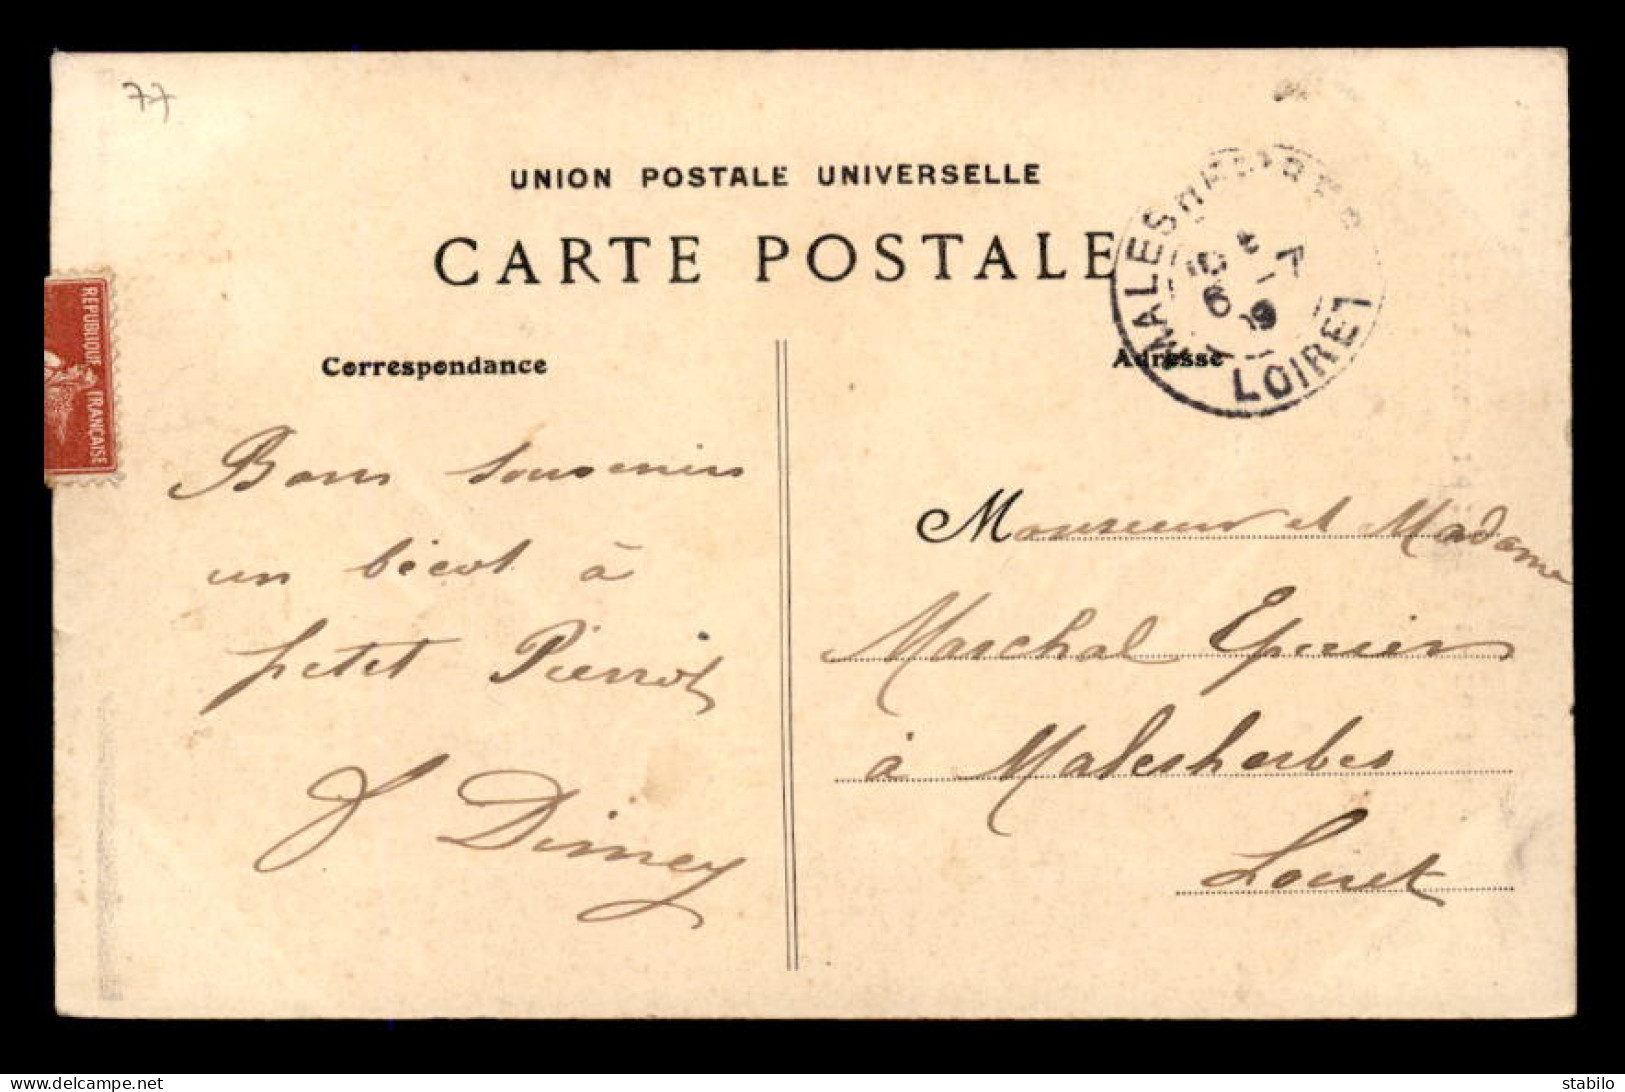 77
UNION POSTALE UNIVERSELLE
CARTE POSTALE
REPUBLIQUE FRANCAISE
MALESHERBES
6 -7
09
LOIRET
Correspondance
Adresse
Bons souvenirs
un bécot à
petit Pierrot
J Dimey
Monsieur et Madame
Marchal Epicier
à Malesherbes
Loiret
delcampe.net
stabilo